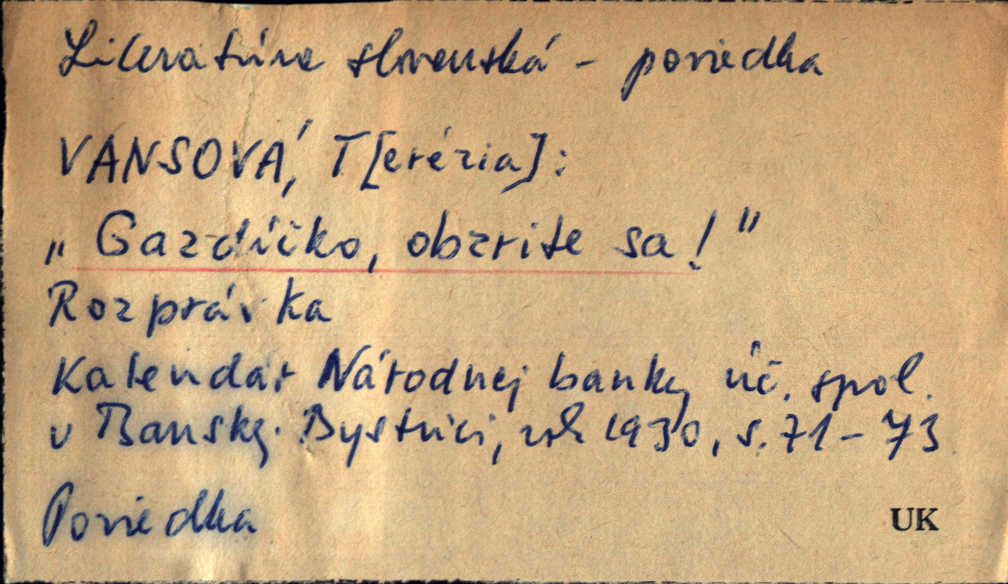 Literatúra slovenská - poviedka
VANSOVÁ, T[erézia]:
„Gazdíčko, obzrite sa!"
Rozprávka
Kalendár Národnej banky úč. spol.
v Bansky. Bystrici, rok 1930, s. 71-73
Poviedka
UK